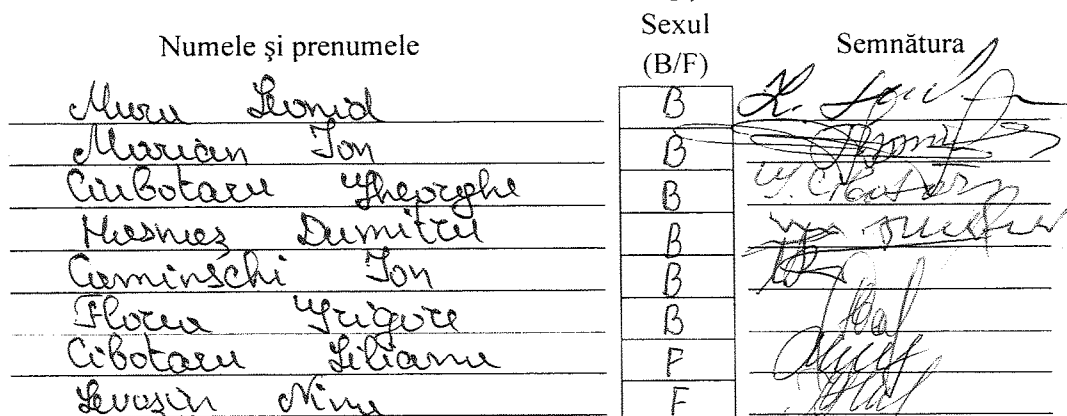 Numele și prenumele Sexul (B/F) Semnătura
Muru Leonid B
Marian Ion B
Ciubotaru Gheorghe B
Dumitru B
Caminschi Ion B
Florea Grigore B
Cibotaru Liliana F
Levașin Nina F